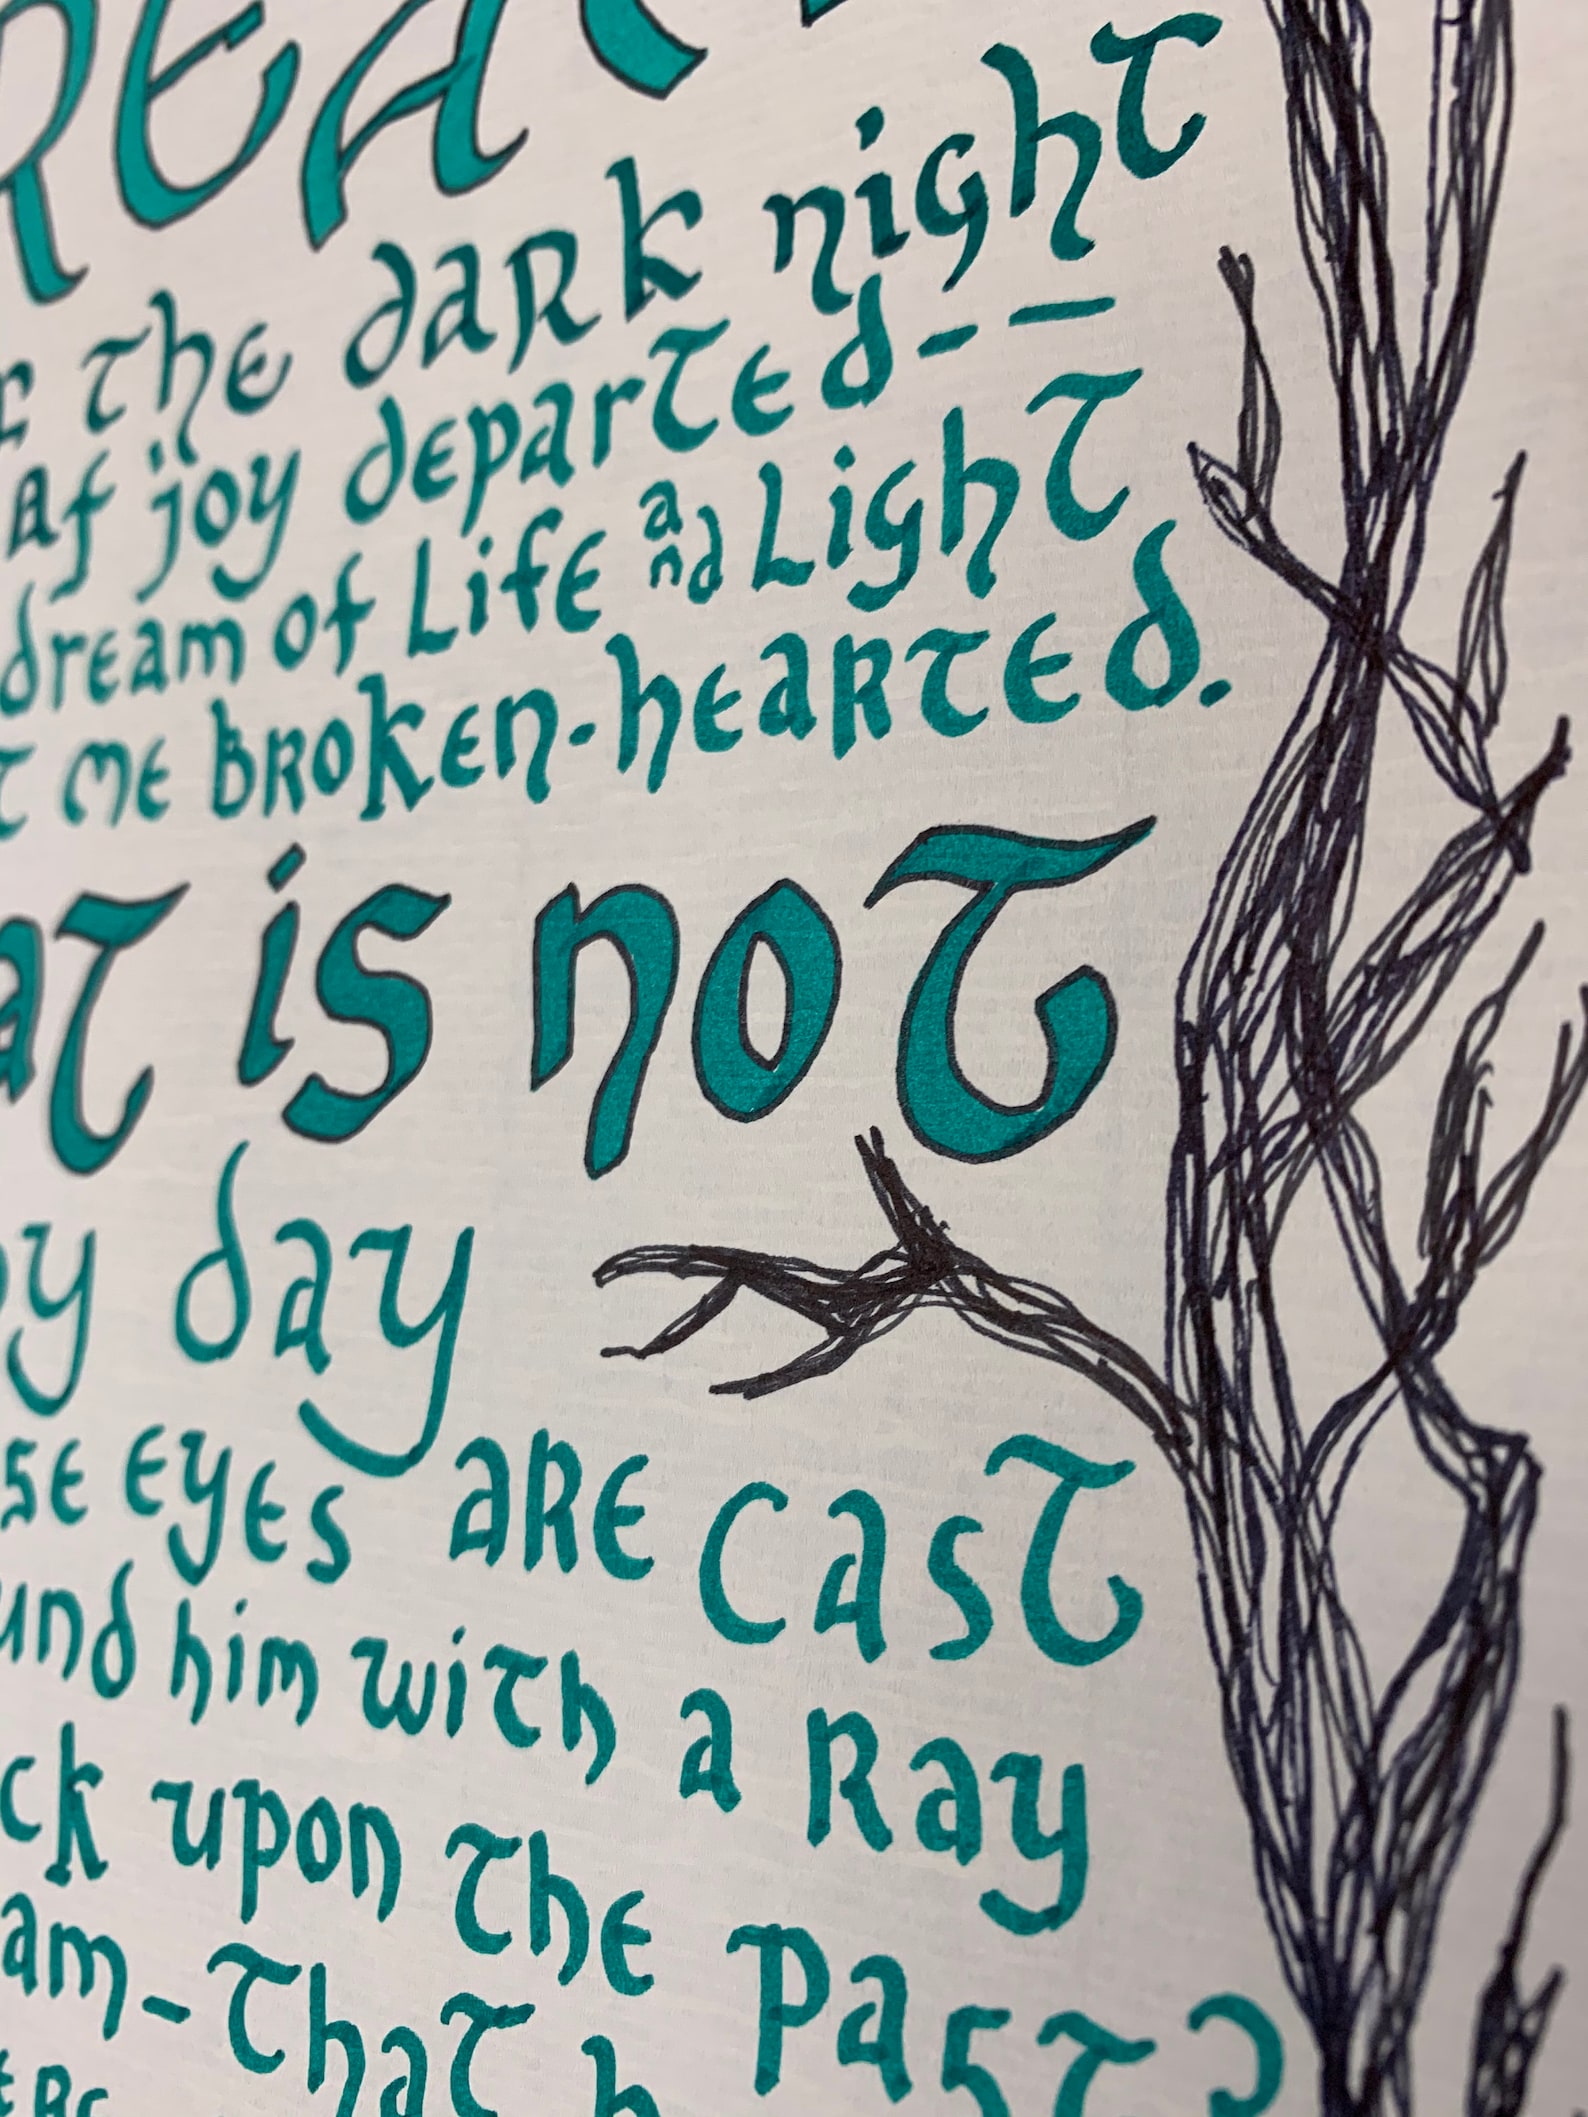 REA
the dark night
af joy departed--
dream of Life and Light
t me broken-hearted.
at is not
y day
se eyes are cast
und him with a Ray
ck upon the Past?
am-That h